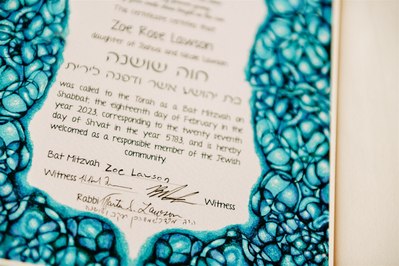 This certificate certifies that
Zoe Rose Lawson
daughter of Joshua and Nicole Lawson
חוה שושנה
בת יהושע אשר ודפנה לירית
was called to the Torah as a Bat Mitzvah on
Shabbat, the eighteenth day of February in the
year 2023, corresponding to the twenty seventh
day of Sh'vat in the year 5783, and is hereby
welcomed as a responsible member of the Jewish
community.
Bat Mitzvah Zoe Lawson
Witness Witness
Rabbi Martin S. Lawson